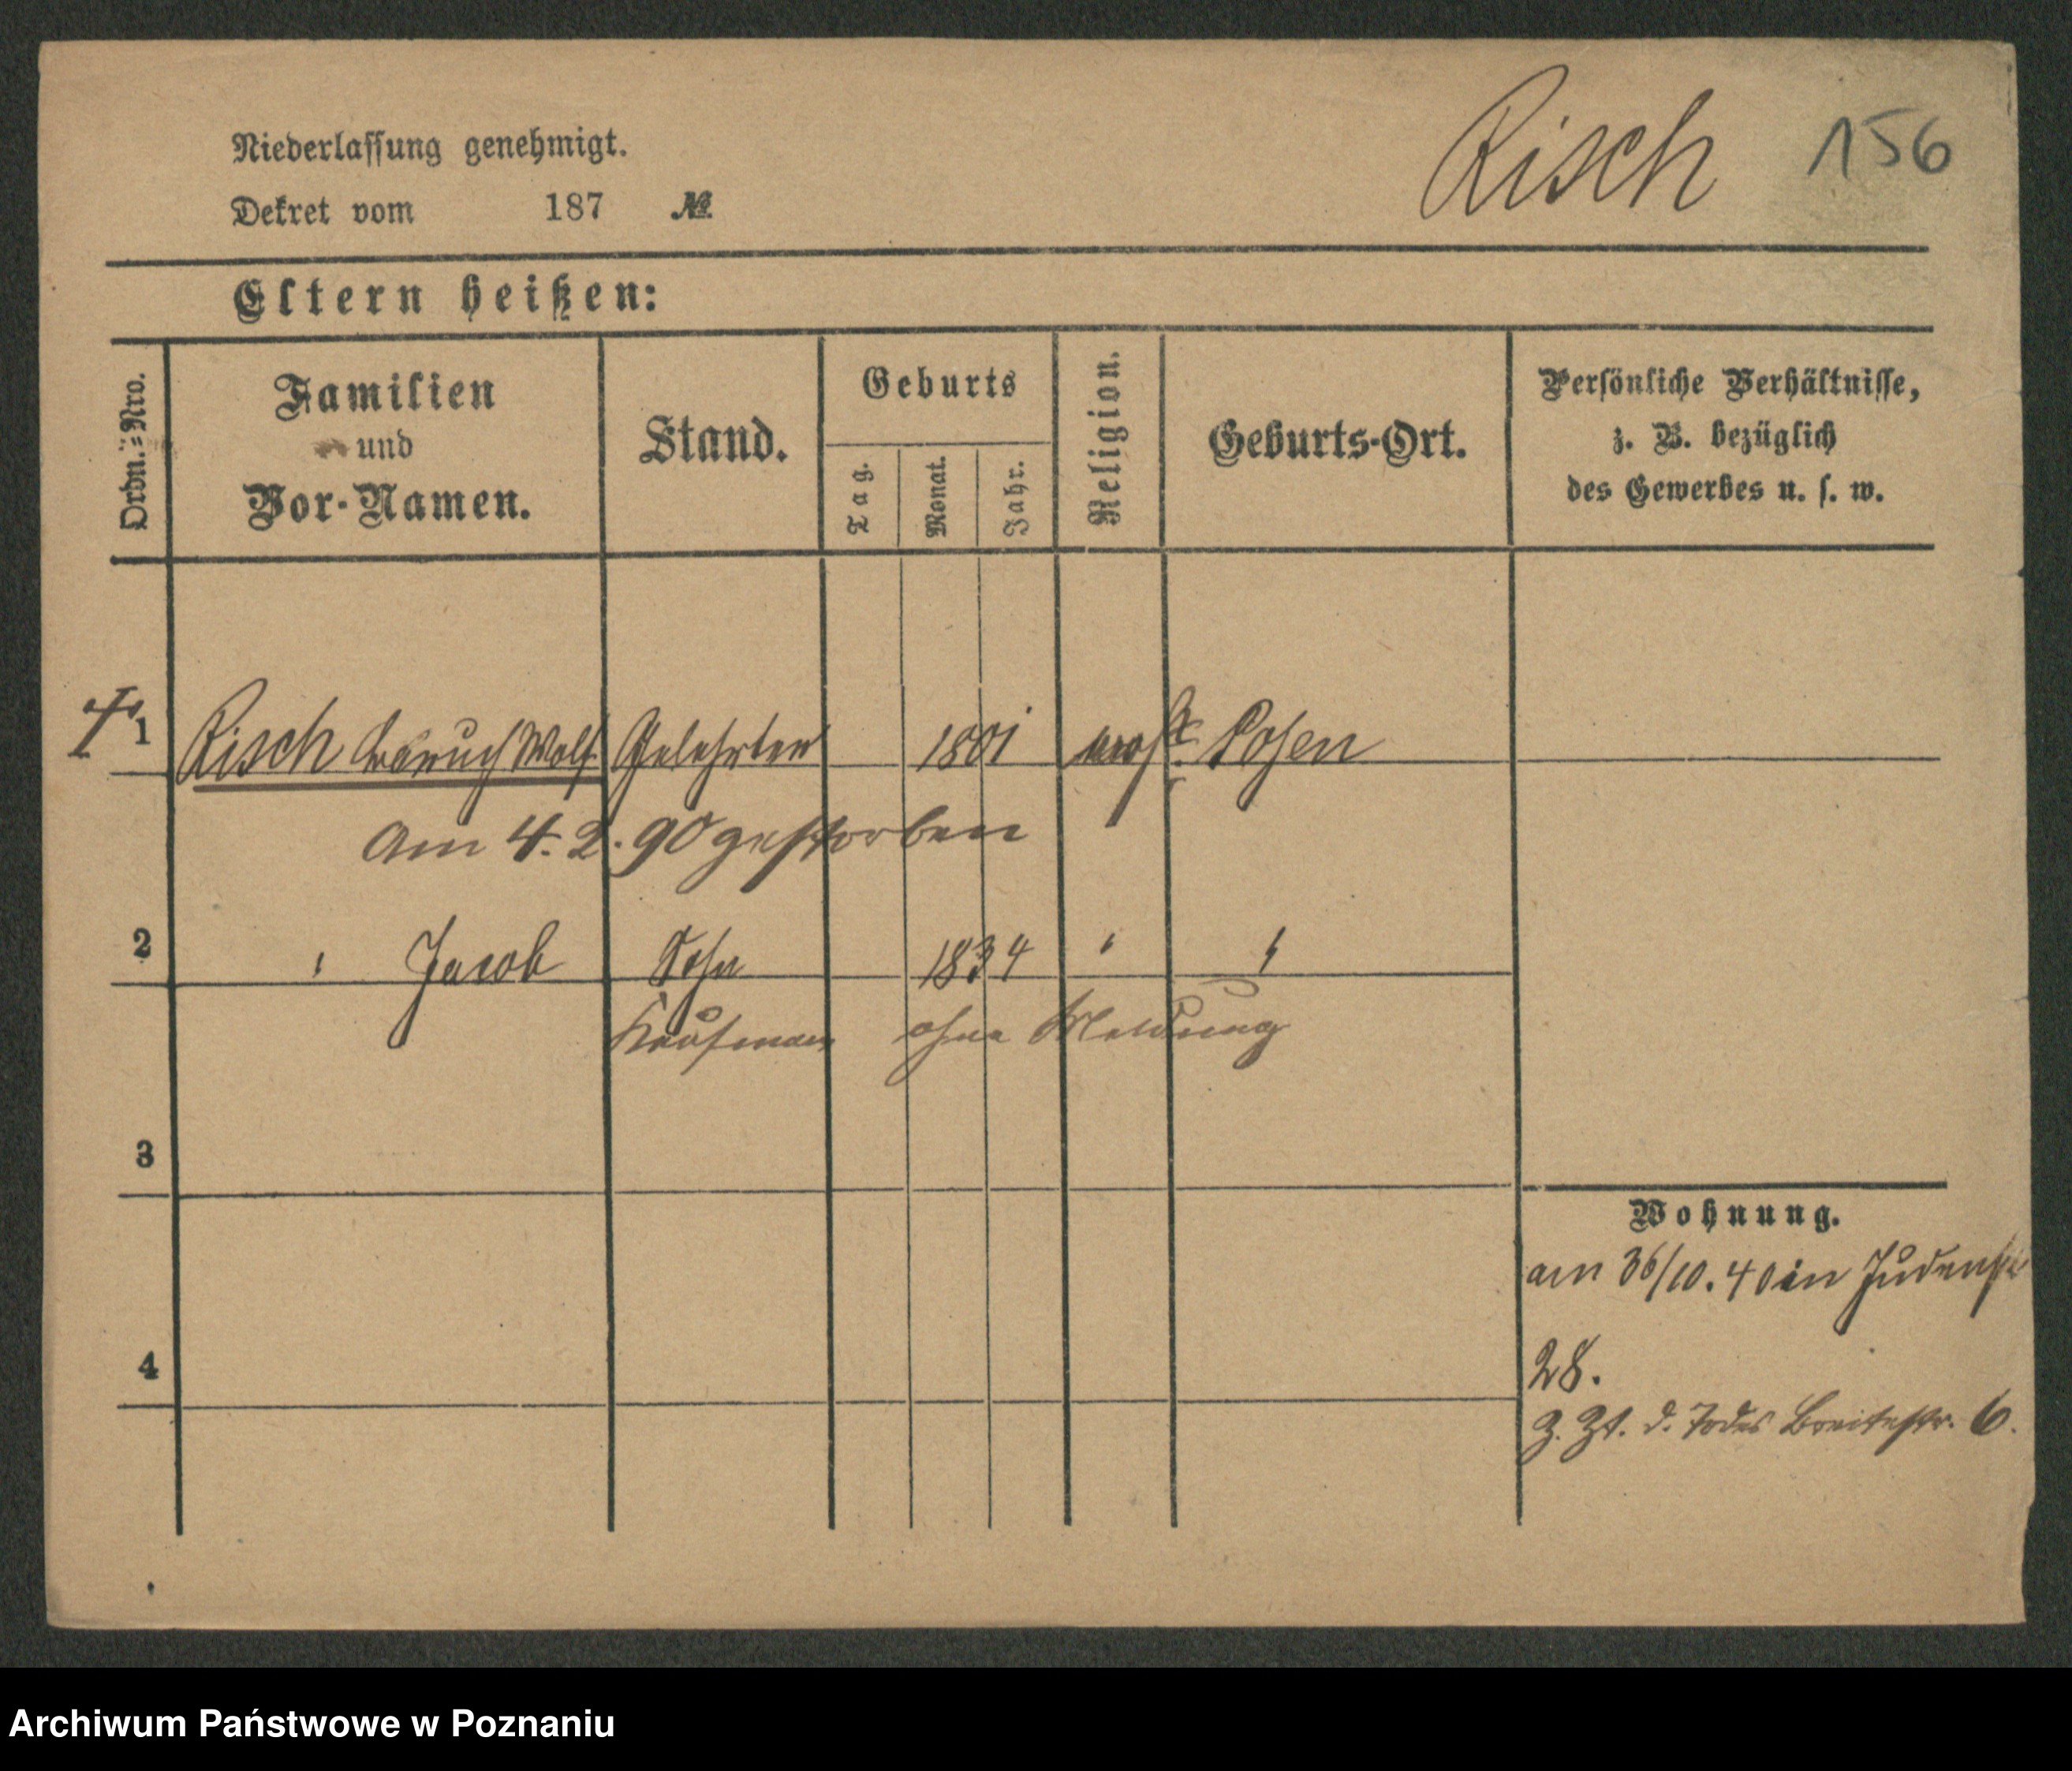 Risch 156
Niederlassung genehmigt.
Dekret vom 187 №
Eltern heißen:
Ordn.=Nro.
Familien
und
Vor-Namen.
Stand.
Geburts
Tag.
Monat.
Jahr.
Religion.
Geburts-Ort.
Persönliche Verhältnisse,
z. B. bezüglich
des Gewerbes u. s. w.
1 Risch Baruch Wolf Gelehrter 1801 mos. Posen
Am 4. 2. 90 gestorben
2 " Jacob Sohn 1834 " "
Kaufmann ohne Meldung
3
Wohnung.
am /10. 40 in Judenstr
28.
4
z. Zt. d. Todes Breitestr. 6.
Archiwum Państwowe w Poznaniu